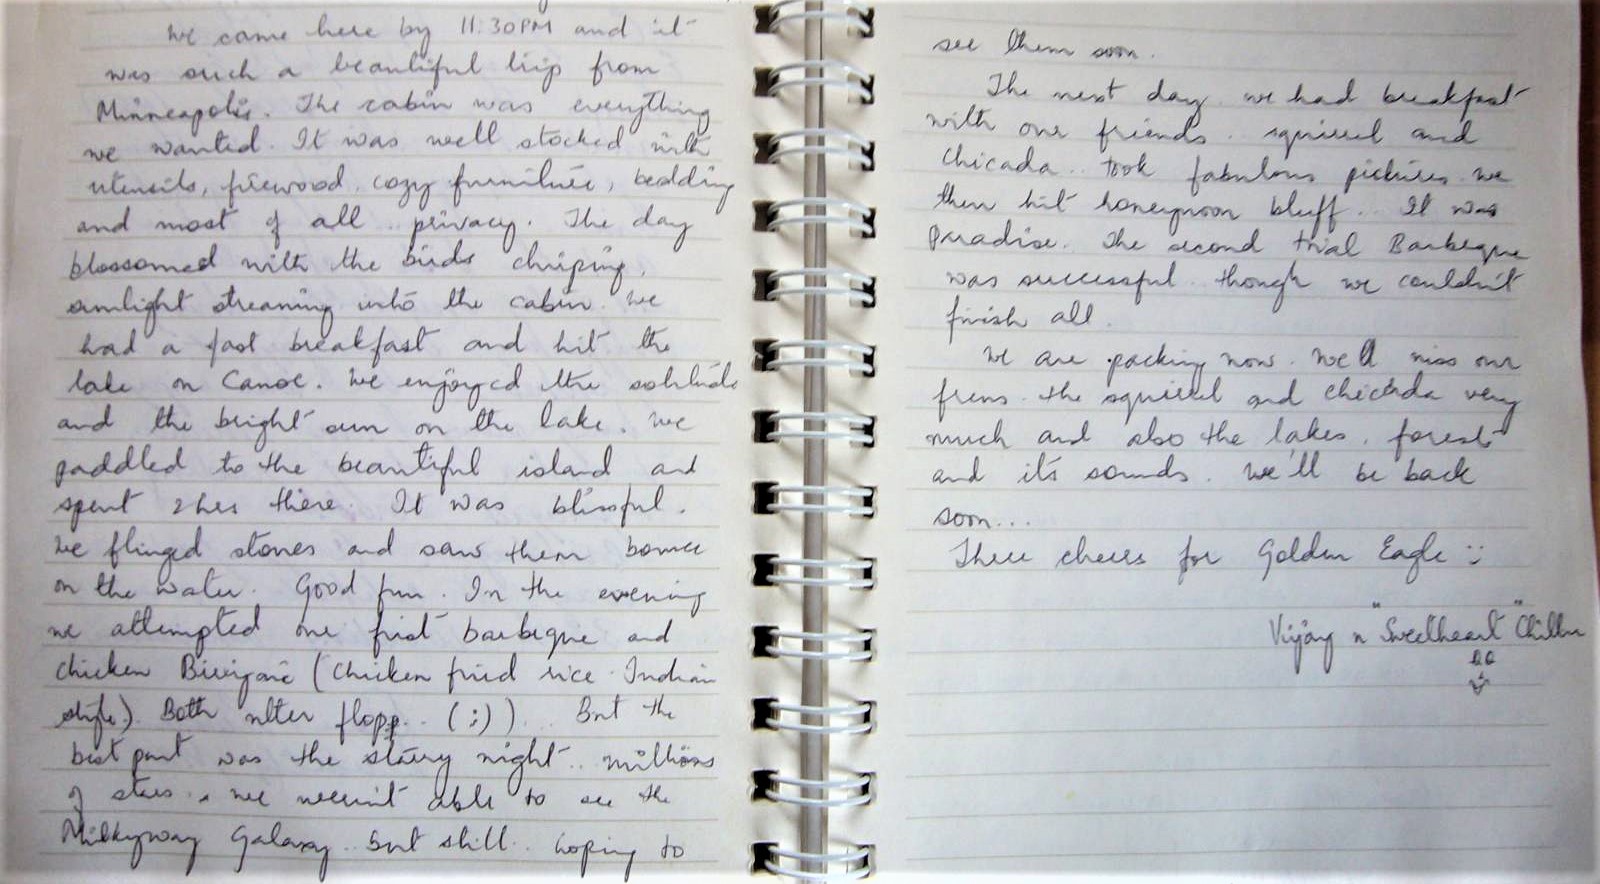 We came here by 11.30PM and it
was such a beautiful trip from
Minneapolis. The cabin was everything
we wanted. It was well stocked with
utensils, firewood, cozy furniture, bedding
and most of all .. privacy. The day
blossomed with the birds chirping,
sunlight streaming into the cabin. We
had a fast breakfast and hit the
lake on Canoe. We enjoyed the solitude
and the bright sun on the lake. We
paddled to the beautiful island and
spent 2 hrs there. It was blissful.
We flinged stones and saw them bounce
on the water. Good fun. In the evening
we attempted our first barbeque and
chicken Biriyani (Chicken fried rice Indian
style). Both utter flopp.. (;)).. But the
best part was the starry night.. millions
of stars.. we weren't able to see the
Milkyway Galaxy.. but still.. hoping to
see them soon.
The next day we had breakfast
with our friends.. squirrel and
chicada.. took fabulous pictures. we
then hit honeymoon bluff.. It was
paradise. The second trial Barbeque
was successful though we couldn't
finish all.
We are packing now. We'll miss our
frens the squirrel and chicada very
much and also the lakes, forests
and its sounds. We'll be back
soon...
Three cheers for Golden Eagle :)
Vijay n "Sweetheart" Chillu